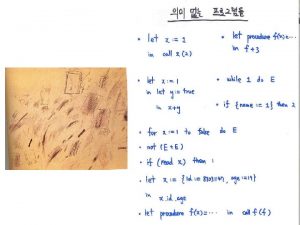 의미 없는 프로그램들
• let x := 1
in call x(2)
• let procedure f(x)=...
in f+3
• let x := 1
in let y := true
in x+y
• while 1 do E
• if {name := 1} then 2
• for x := 1 to false do E
• not (E+E)
• if (read x) then 1
• let x := {id := age := 19}
in x.id.age
• let procedure f(x)=... in call f(f)